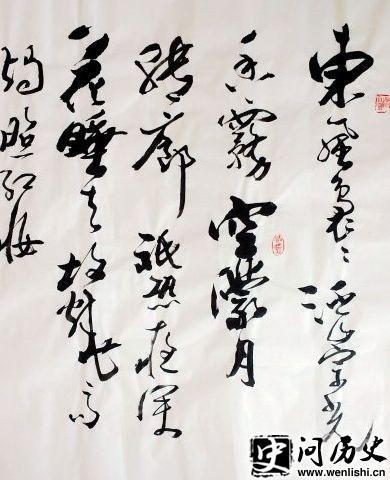 東風裊〻泛崇光
香霧空濛月
轉廊祇恐夜深
花睡去故燒高
燭照紅妝
史 问历史
www.wenlishi.cn